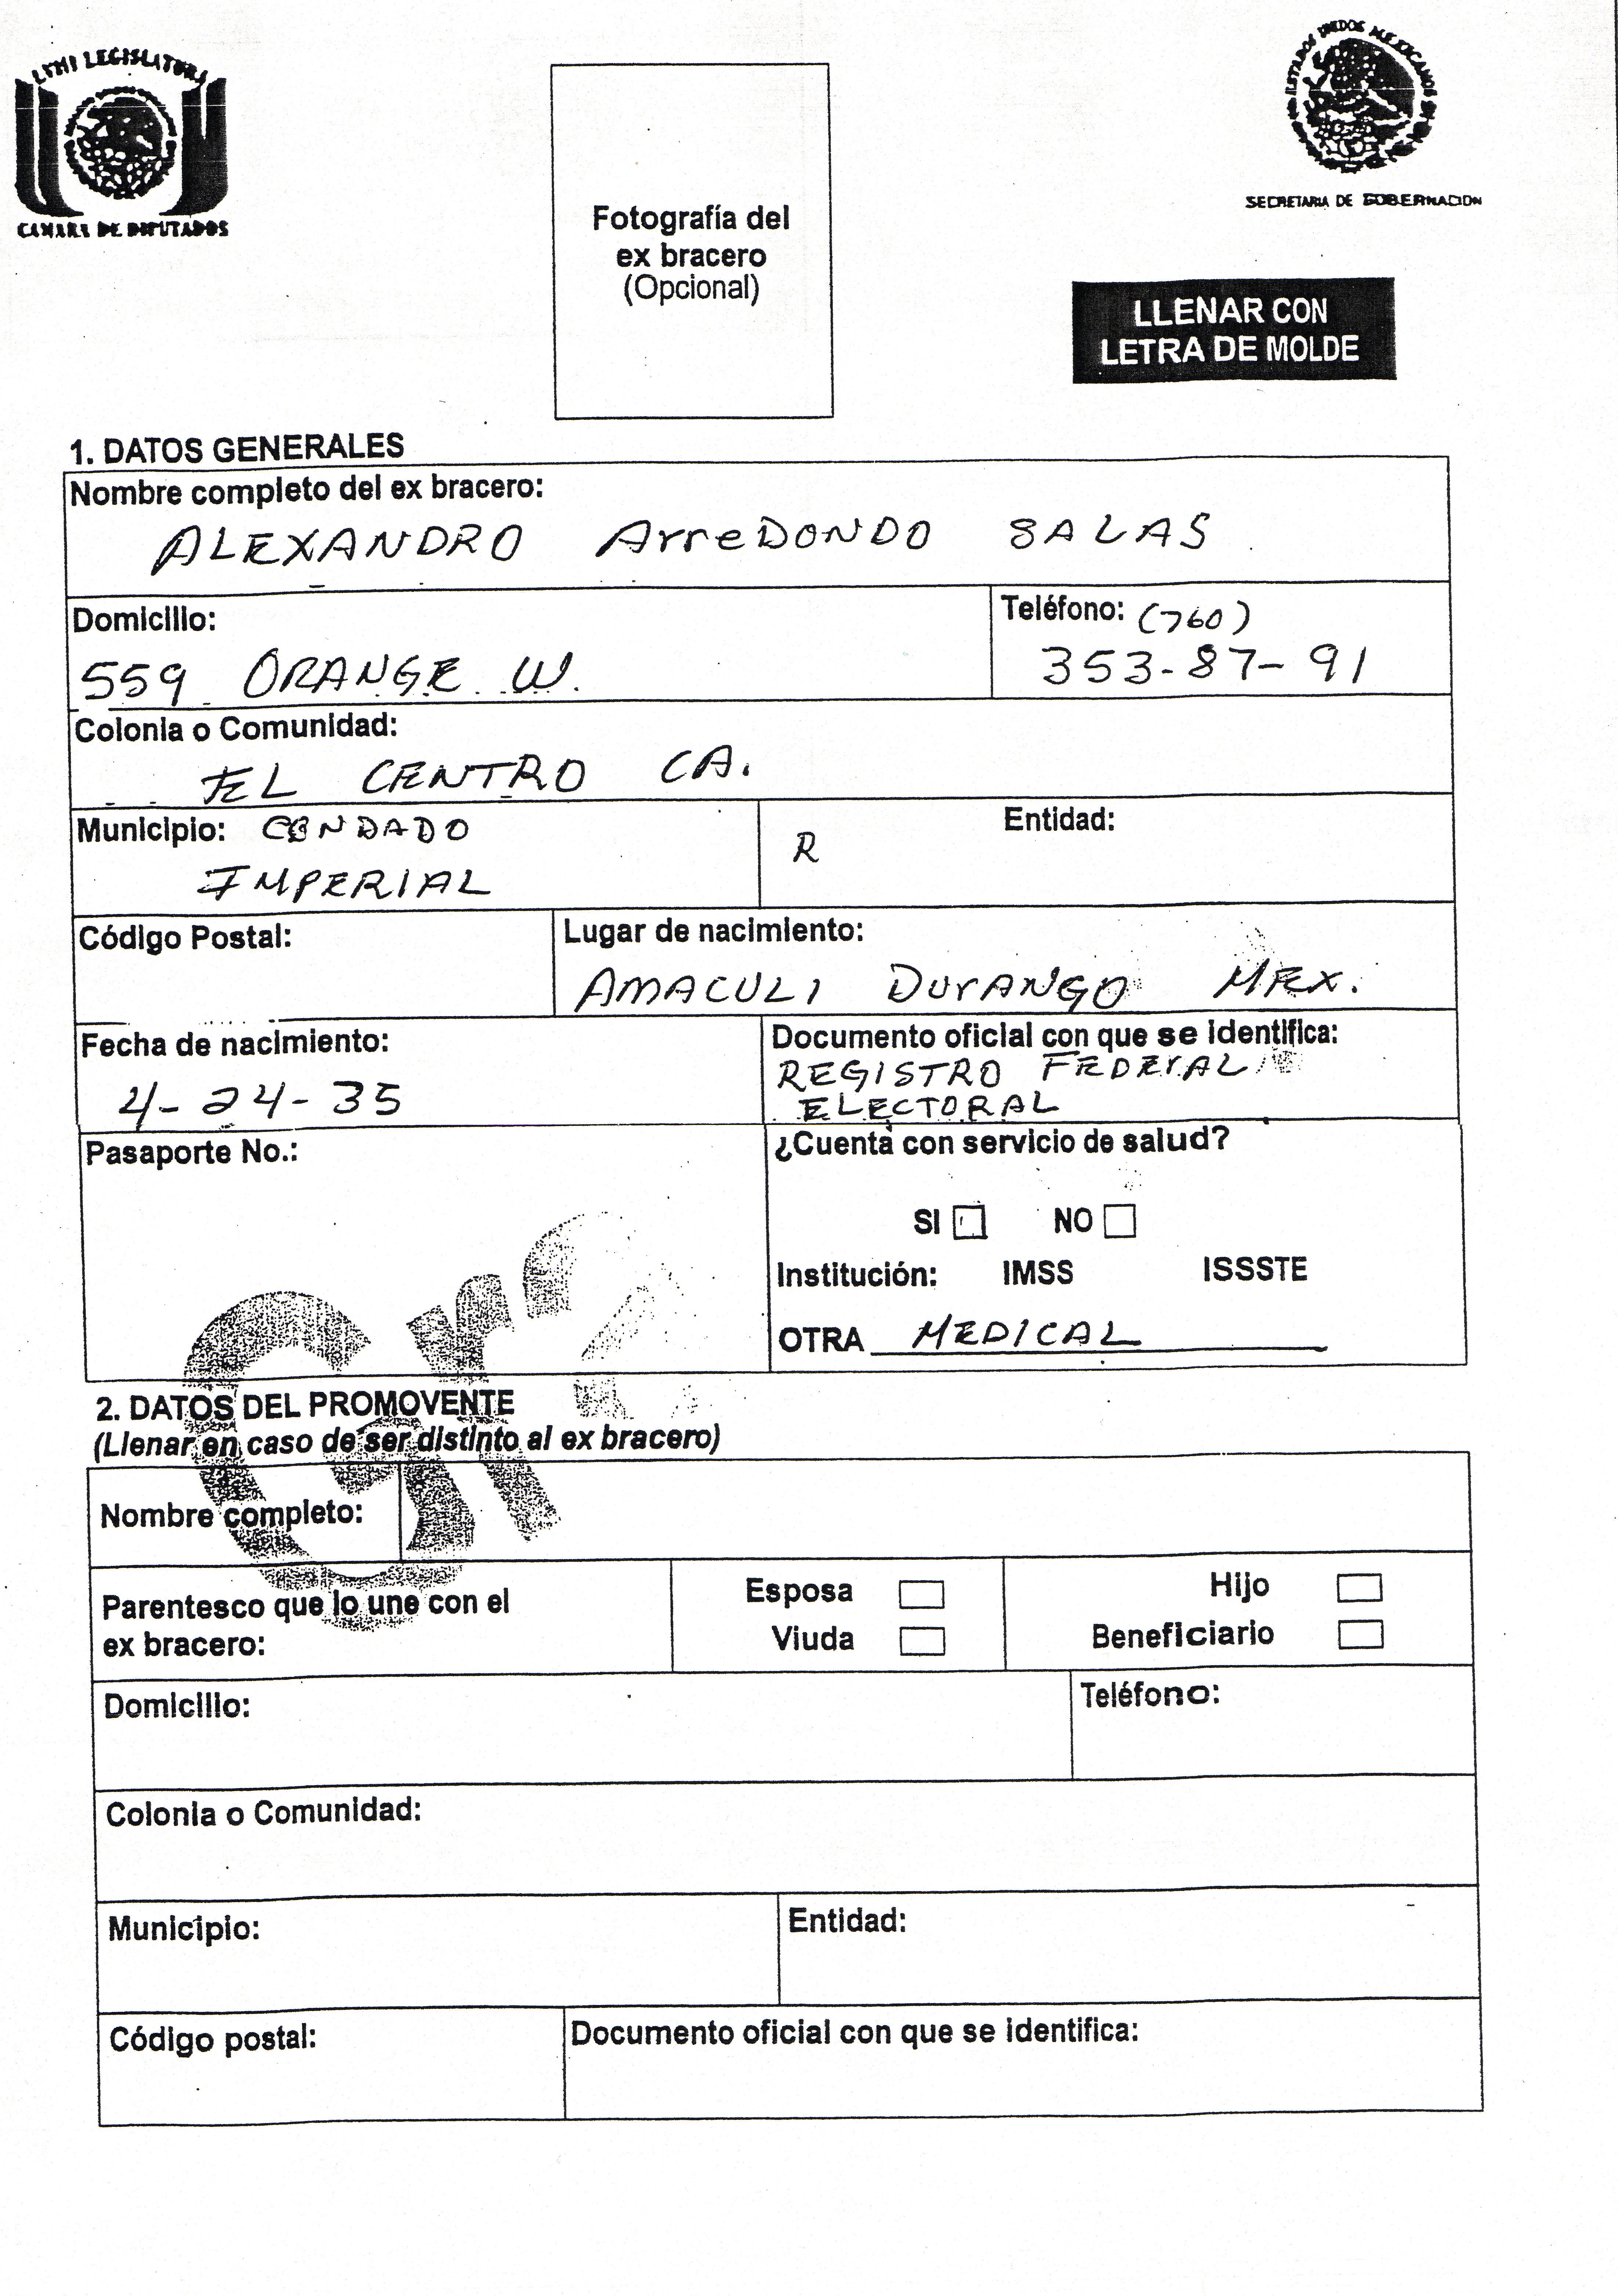 LVIII LEGISLATURA
CAMARA DE DIPUTADOS
Fotografía del
ex bracero
(Opcional)
ESTADOS UNIDOS MEXICANOS
SECRETARIA DE GOBERNACION
LLENAR CON
LETRA DE MOLDE
1. DATOS GENERALES
Nombre completo del ex bracero:
ALEXANDRO ArreDONDO SALAS
Domicilio:
559 ORANGE W.
Teléfono: (760)
353-87-91
Colonia o Comunidad:
EL CENTRO CA.
Municipio: CONDADO
IMPERIAL
R
Entidad:
Código Postal:
Lugar de nacimiento:
AMACULI DUrANGO MEX.
Fecha de nacimiento:
4-24-35
Documento oficial con que se identifica:
REGISTRO FEDErAL
ELECTORAL
Pasaporte No.:
¿Cuenta con servicio de salud?
SI NO
Institución: IMSS ISSSTE
OTRA MEDICAL
2. DATOS DEL PROMOVENTE
(Llenar en caso de ser distinto al ex bracero)
Nombre completo:
Parentesco que lo une con el
ex bracero:
Esposa
Viuda
Hijo
Beneficiario
Domicilio:
Teléfono:
Colonia o Comunidad:
Municipio:
Entidad:
Código postal:
Documento oficial con que se identifica: